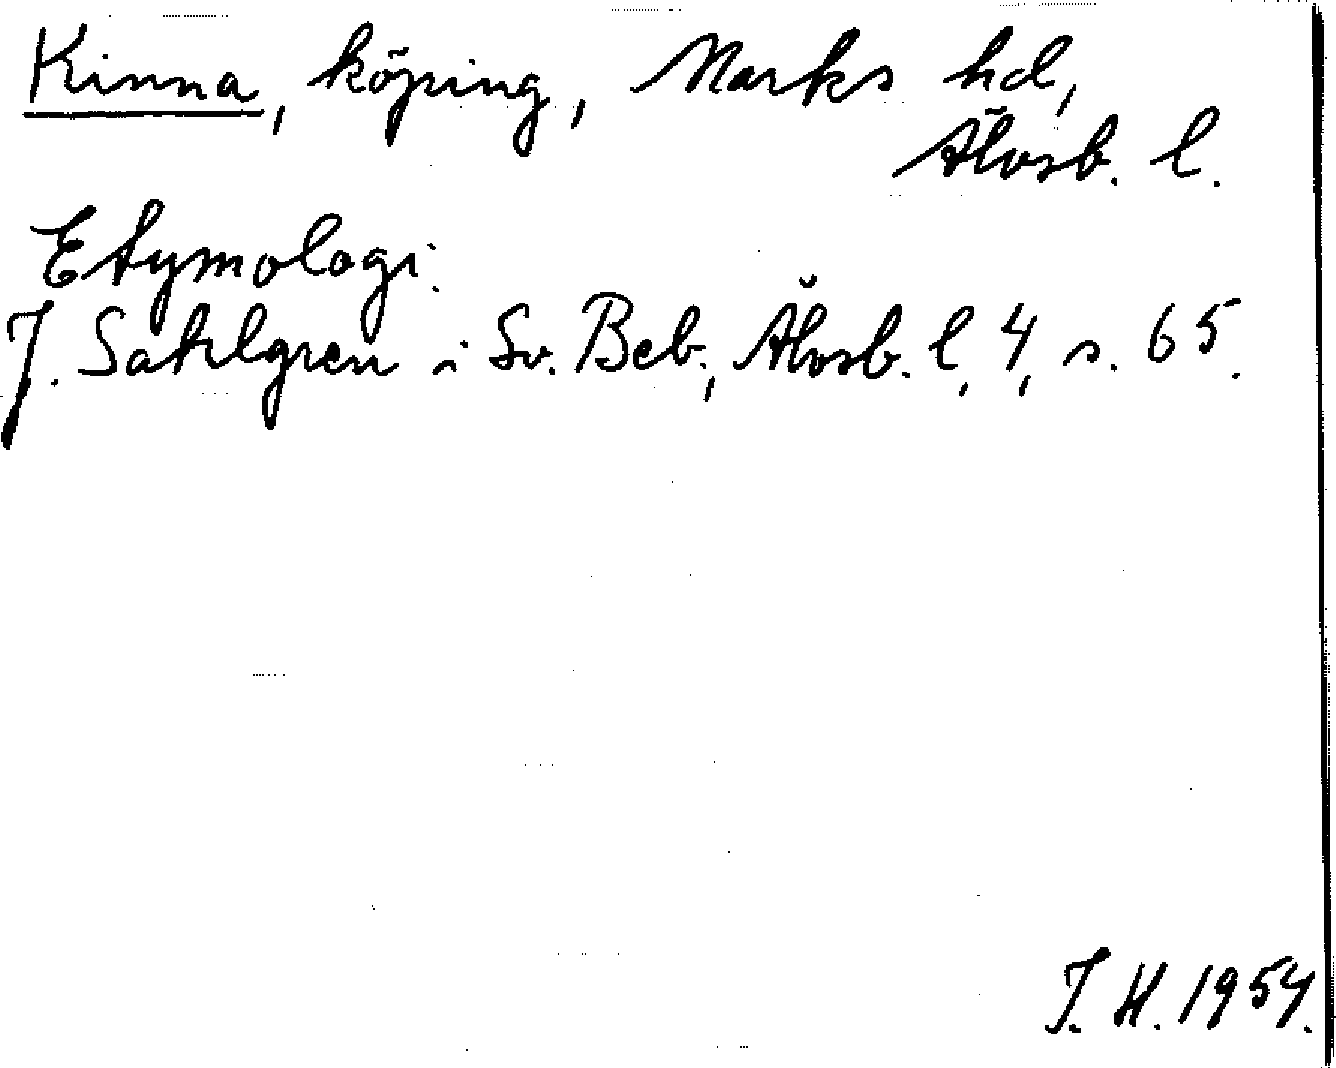 Kinna, köping, Marks hd,
Älvsb. l.
Etymologi.
J. Sahlgren i Sv. Beb., Älvsb. l, 4, s. 65.
I. H. 1954.